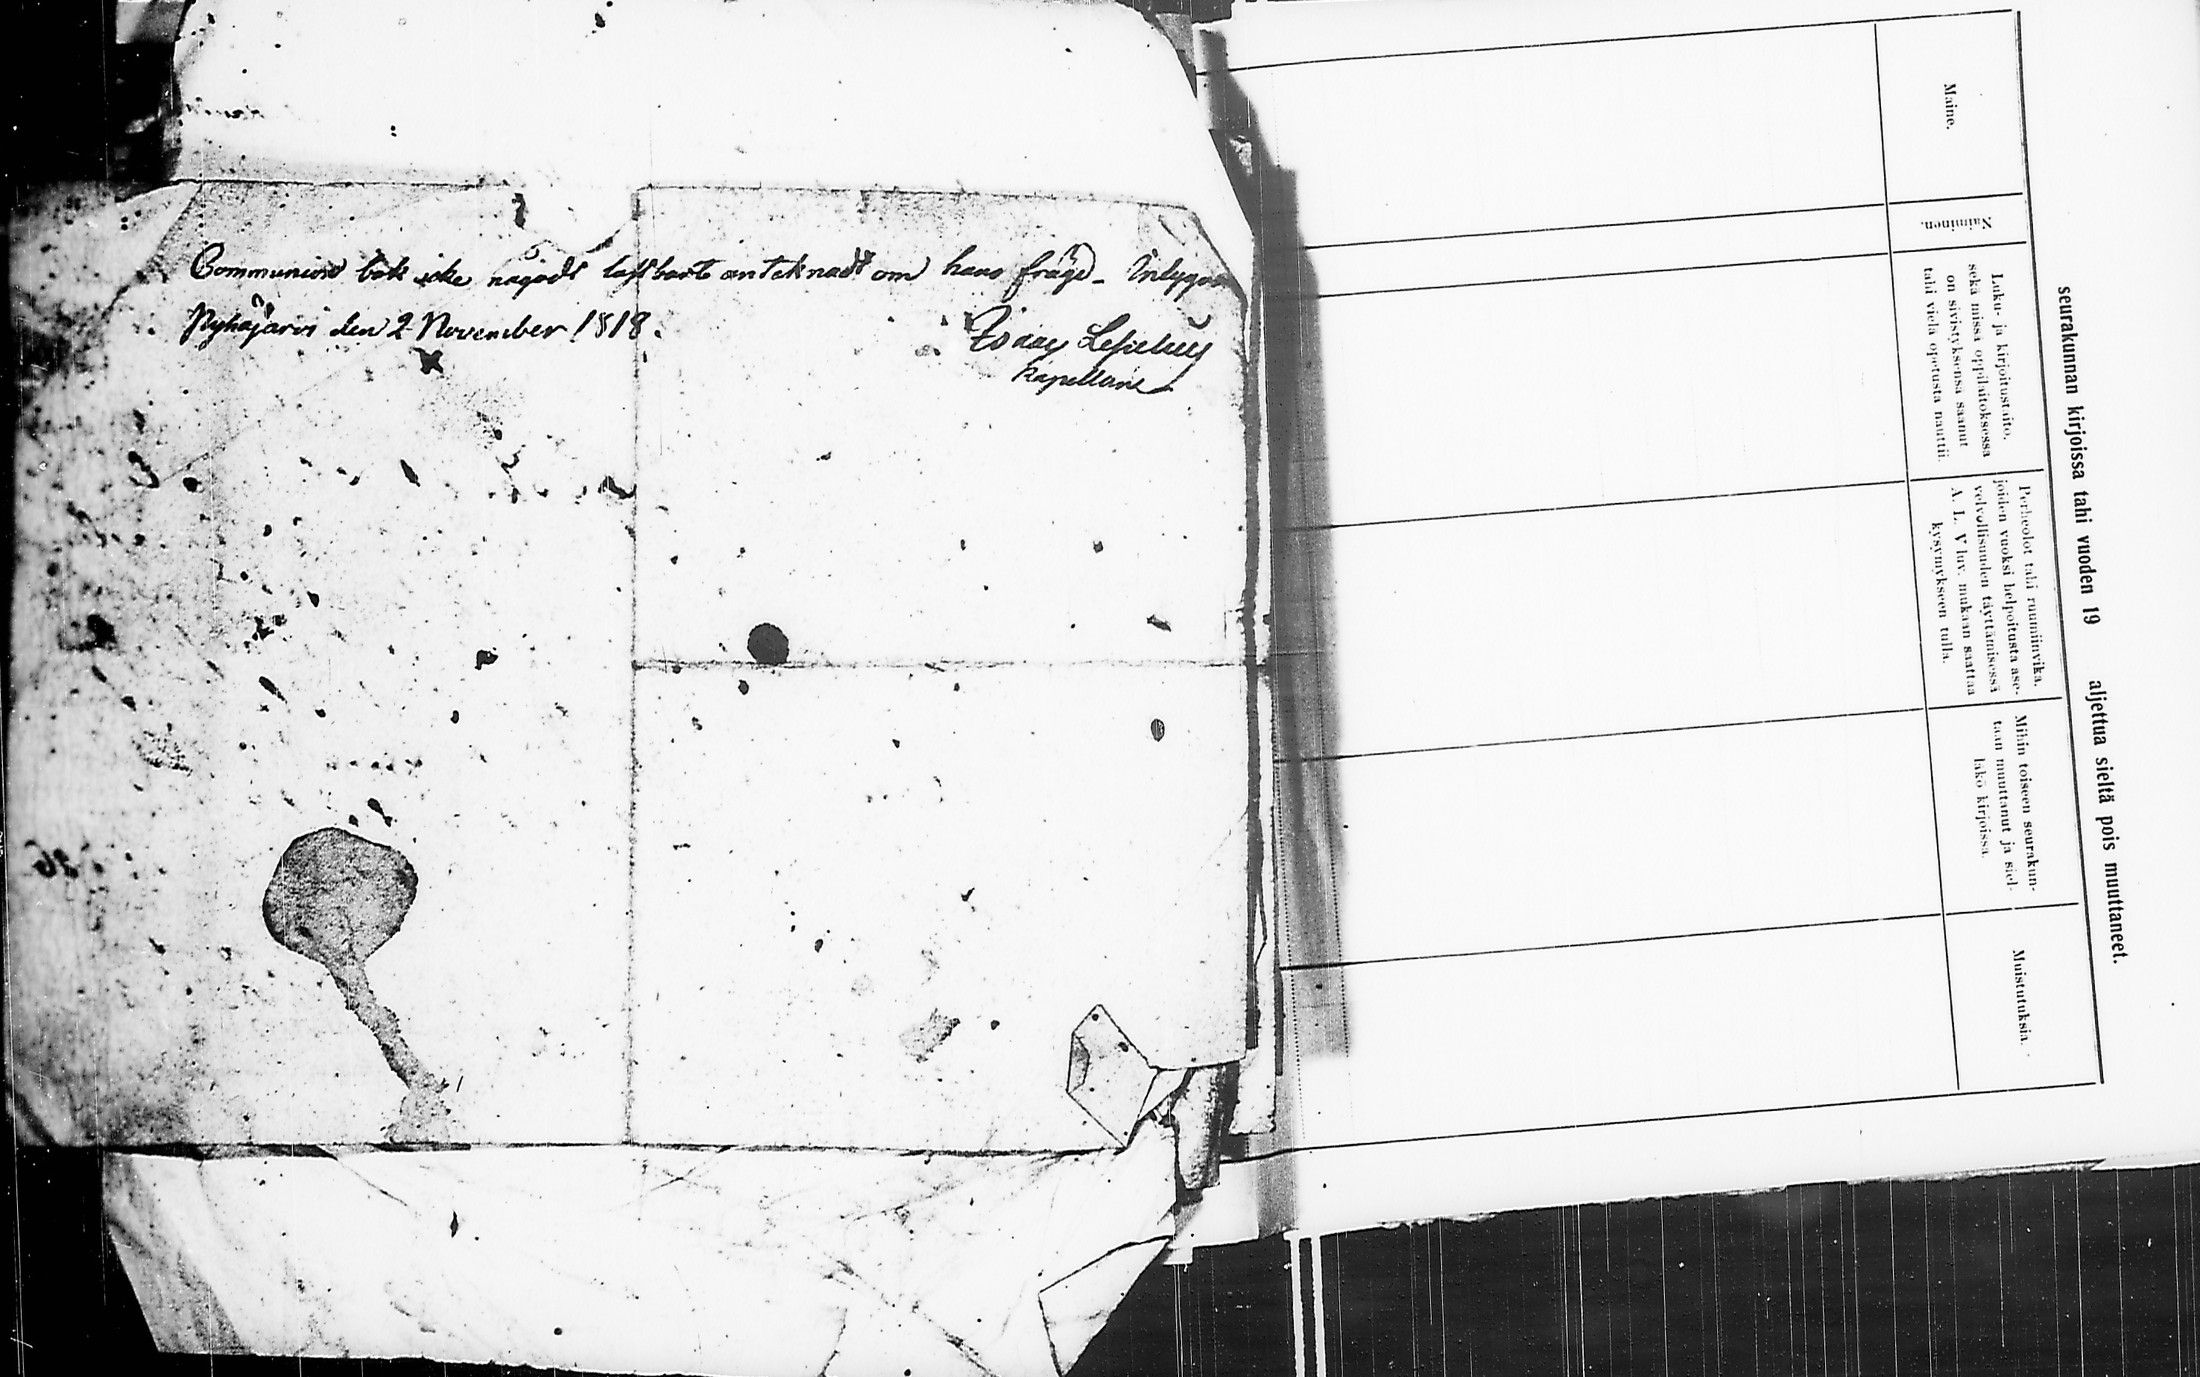 Communion bok icke någodt lastbart anteknadt om hans fräjd. Intygar
Pyhäjärvi den 2 November 1818.
Isaac
Kapellans
seurakunnan kirjoissa tahi vuoden 19 aljettua sieltä pois muuttaneet.
Maine.
Naiminen.
Luku- ja kirjoitustaito,
sekä missä oppilaitoksessa
on sivistyksensä saanut
tahi vielä opetusta nauttii.
Perheolot tahi ruumiinvika,
joiden vuoksi helpoitusta ase-
velvollisuuden täyttämisessä
A. L. V luv. mukaan saattaa
kysymykseen tulla.
Mihin toiseen seurakun-
taan muuttanut ja siel-
läkö kirjoissa.
Muistutuksia.